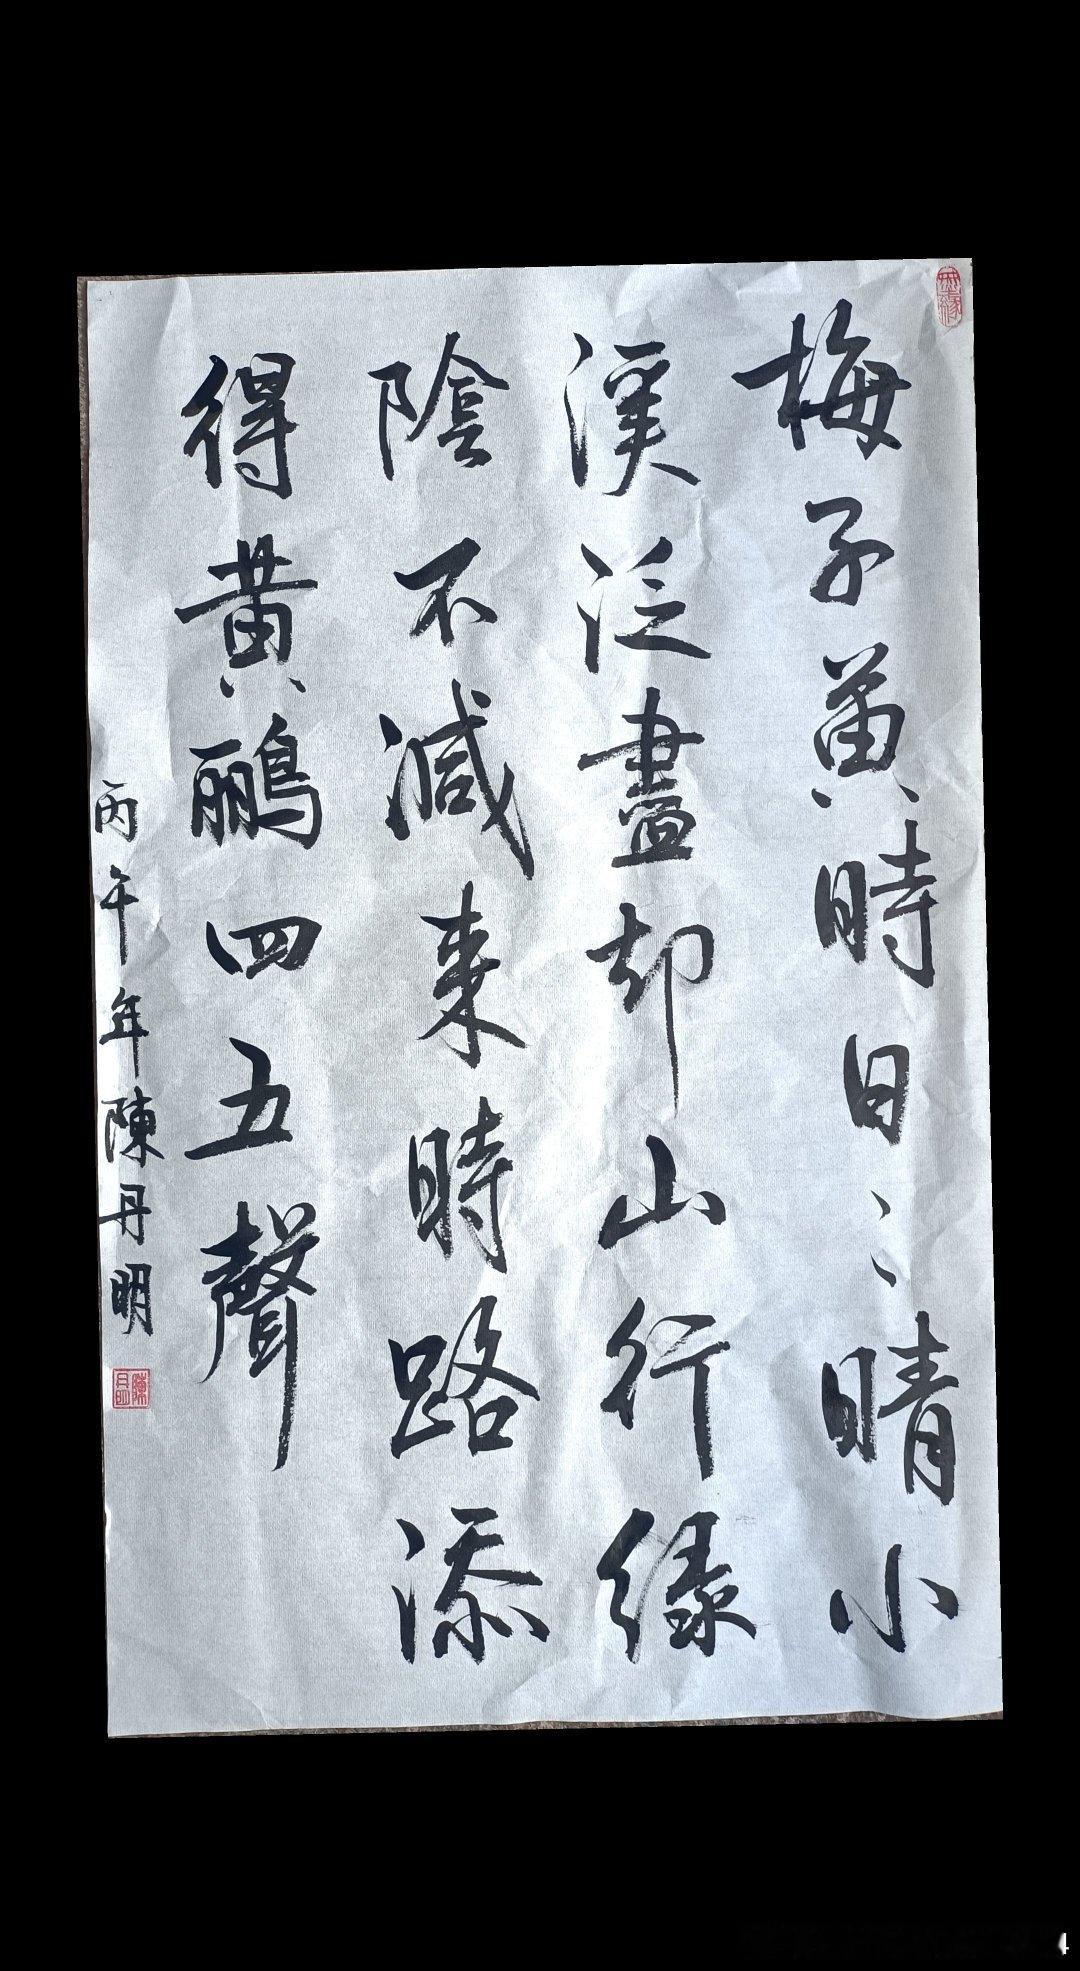 梅子黄時日〻晴小
溪泛盡却山行緑
陰不減来時路添
得黄鸝四五聲
丙午年陳丹明
陳丹明